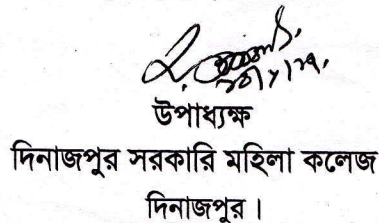 উপাধ্যক্ষ
দিনাজপুর সরকারি মহিলা কলেজ
দিনাজপুর।